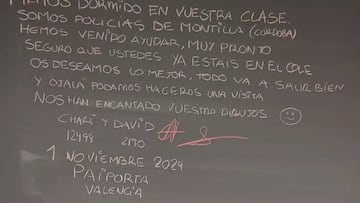 HEMOS DORMIDO EN VUESTRA CLASE.
SOMOS POLICIAS DE MONTILLA (CÓRDOBA)
HEMOS VENIDO AYUDAR, MUY PRONTO
SEGURO QUE USTEDES YA ESTAIS EN EL COLE
OS DESEAMOS LO MEJOR, TODO VA A SALIR BIEN
Y OJALA PODAMOS HACEROS UNA VISITA
NOS HAN ENCANTADO VUESTRO DIBUJOS
CHARI Y DAVID
12498 2170
1 NOVIEMBRE 2024
PAIPORTA
VALENCIA